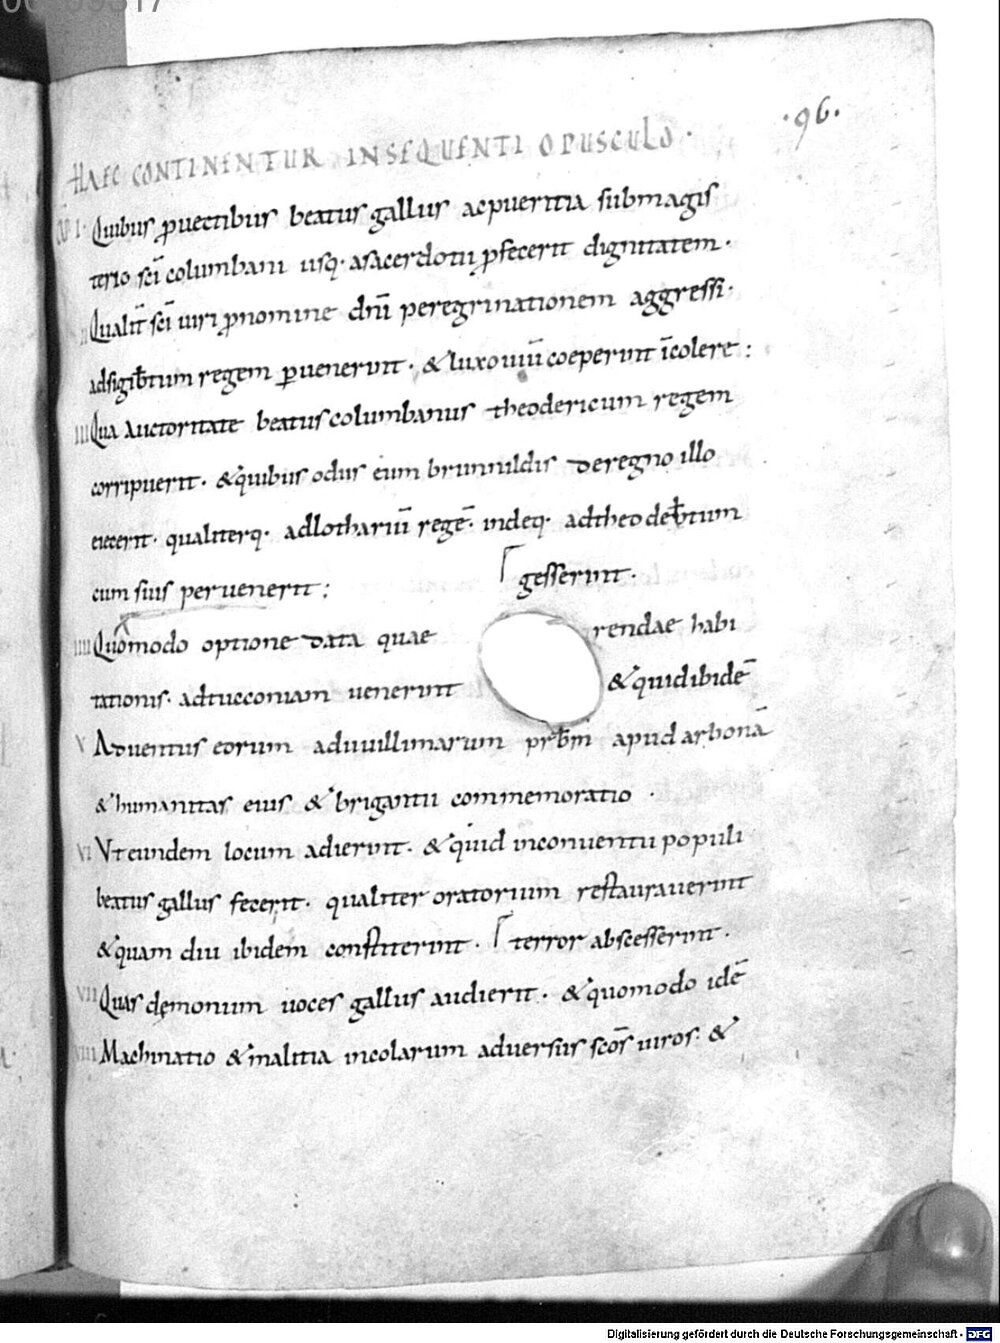 ·96·
HAEC CONTINENTUR IN SEQUENTI OPUSCULO·
I· Quibus ꝓuectibus beatus gallus ac pueritia sub magis
terio sci̅ columbani usq· a sacerdotii ꝑfecerit dignitatem·
II Qualit̅ sci̅ uiri ꝓ nomine dni̅ peregrinationem aggressi·
ad sigib̅tum regem ꝑuenerunt· & luxouiu̅ coeperunt i̅colere:
III Qua auctoritate beatus columbanus theodericum regem
corripuerit· & quibus odiis eum brunnildis de regno illo
eiecerit· qualiterq· ad lothariu̅ rege̅· indeq· ad theodeb̅tum
cum suis peruenerit: gesserint·
IIII Quomodo optione data quaerendae habi
tationis· ad tucconiam uenerunt & quid ibide̅
V Aduentus eorum ad uuillimarum prb̅m apud arbona̅
& humanitas eius & brigantii commemoratio·
VI Vt eundem locum adierunt· & quid in conuentu populi
beatus gallus fecerit· qualiter oratorium restaurauerint
& quam diu ibidem constiterint· terror abscesserint·
VII Quas dęmonum uoces gallus audierit· & quomodo ide̅
VIII Machinatio & malitia incolarum aduersus sco̅s uiros· &
Digitalisierung gefördert durch die Deutsche Forschungsgemeinschaft - DFG